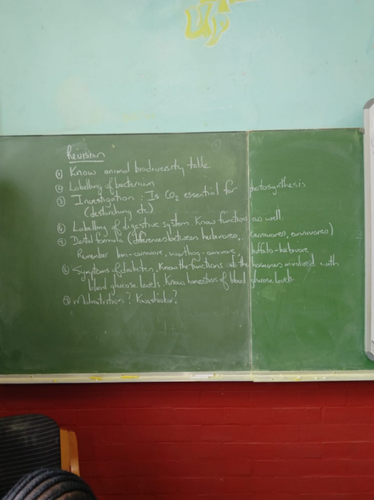 Revision
① Know animal biodiversity table
② Labelling of bacterium
③ Investigation: Is CO₂ essential for photosynthesis
(destarching etc)
Labelling of digestive system. Know functions as well.
Dental formula (differences between herbivores, carnivores, omnivores)
Remember lion-carnivore, buffalo-herbivore
⑥ Symptoms of diabetes, Know the functions of the hormones involved with
blood glucose levels. Know homeostasis of blood glucose levels
⑦ Malnutrition? Kwashiorkor?